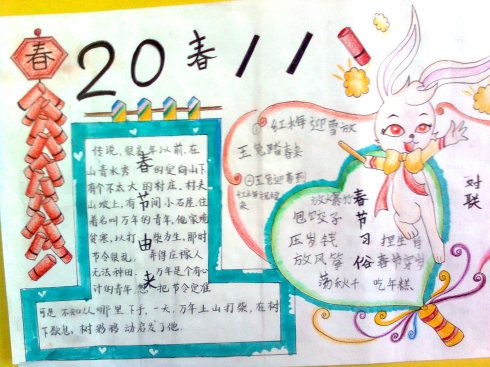 春
20春11
春节由来
传说,很多年以前,在
山青水秀的定向山下
有个不太大的村庄,村夫
山坡上,有节间小石屋,住
着名叫万年的青年,他家境
贫寒,以打柴为生,那时
节令很乱,弄得庄稼人
无法种田,万年是个有心
计的青年,想把节令定准
可是不知从哪里下手,一天,万年上山打柴,在树
下歇息,树影移动启发了他.
①红梅迎雪放
玉兔踏春来
②玉兔迎春到
红梅祝福
来
对联
春节习俗
放爆竹
包饺子
压岁钱
放风筝
荡秋千
吃年糕